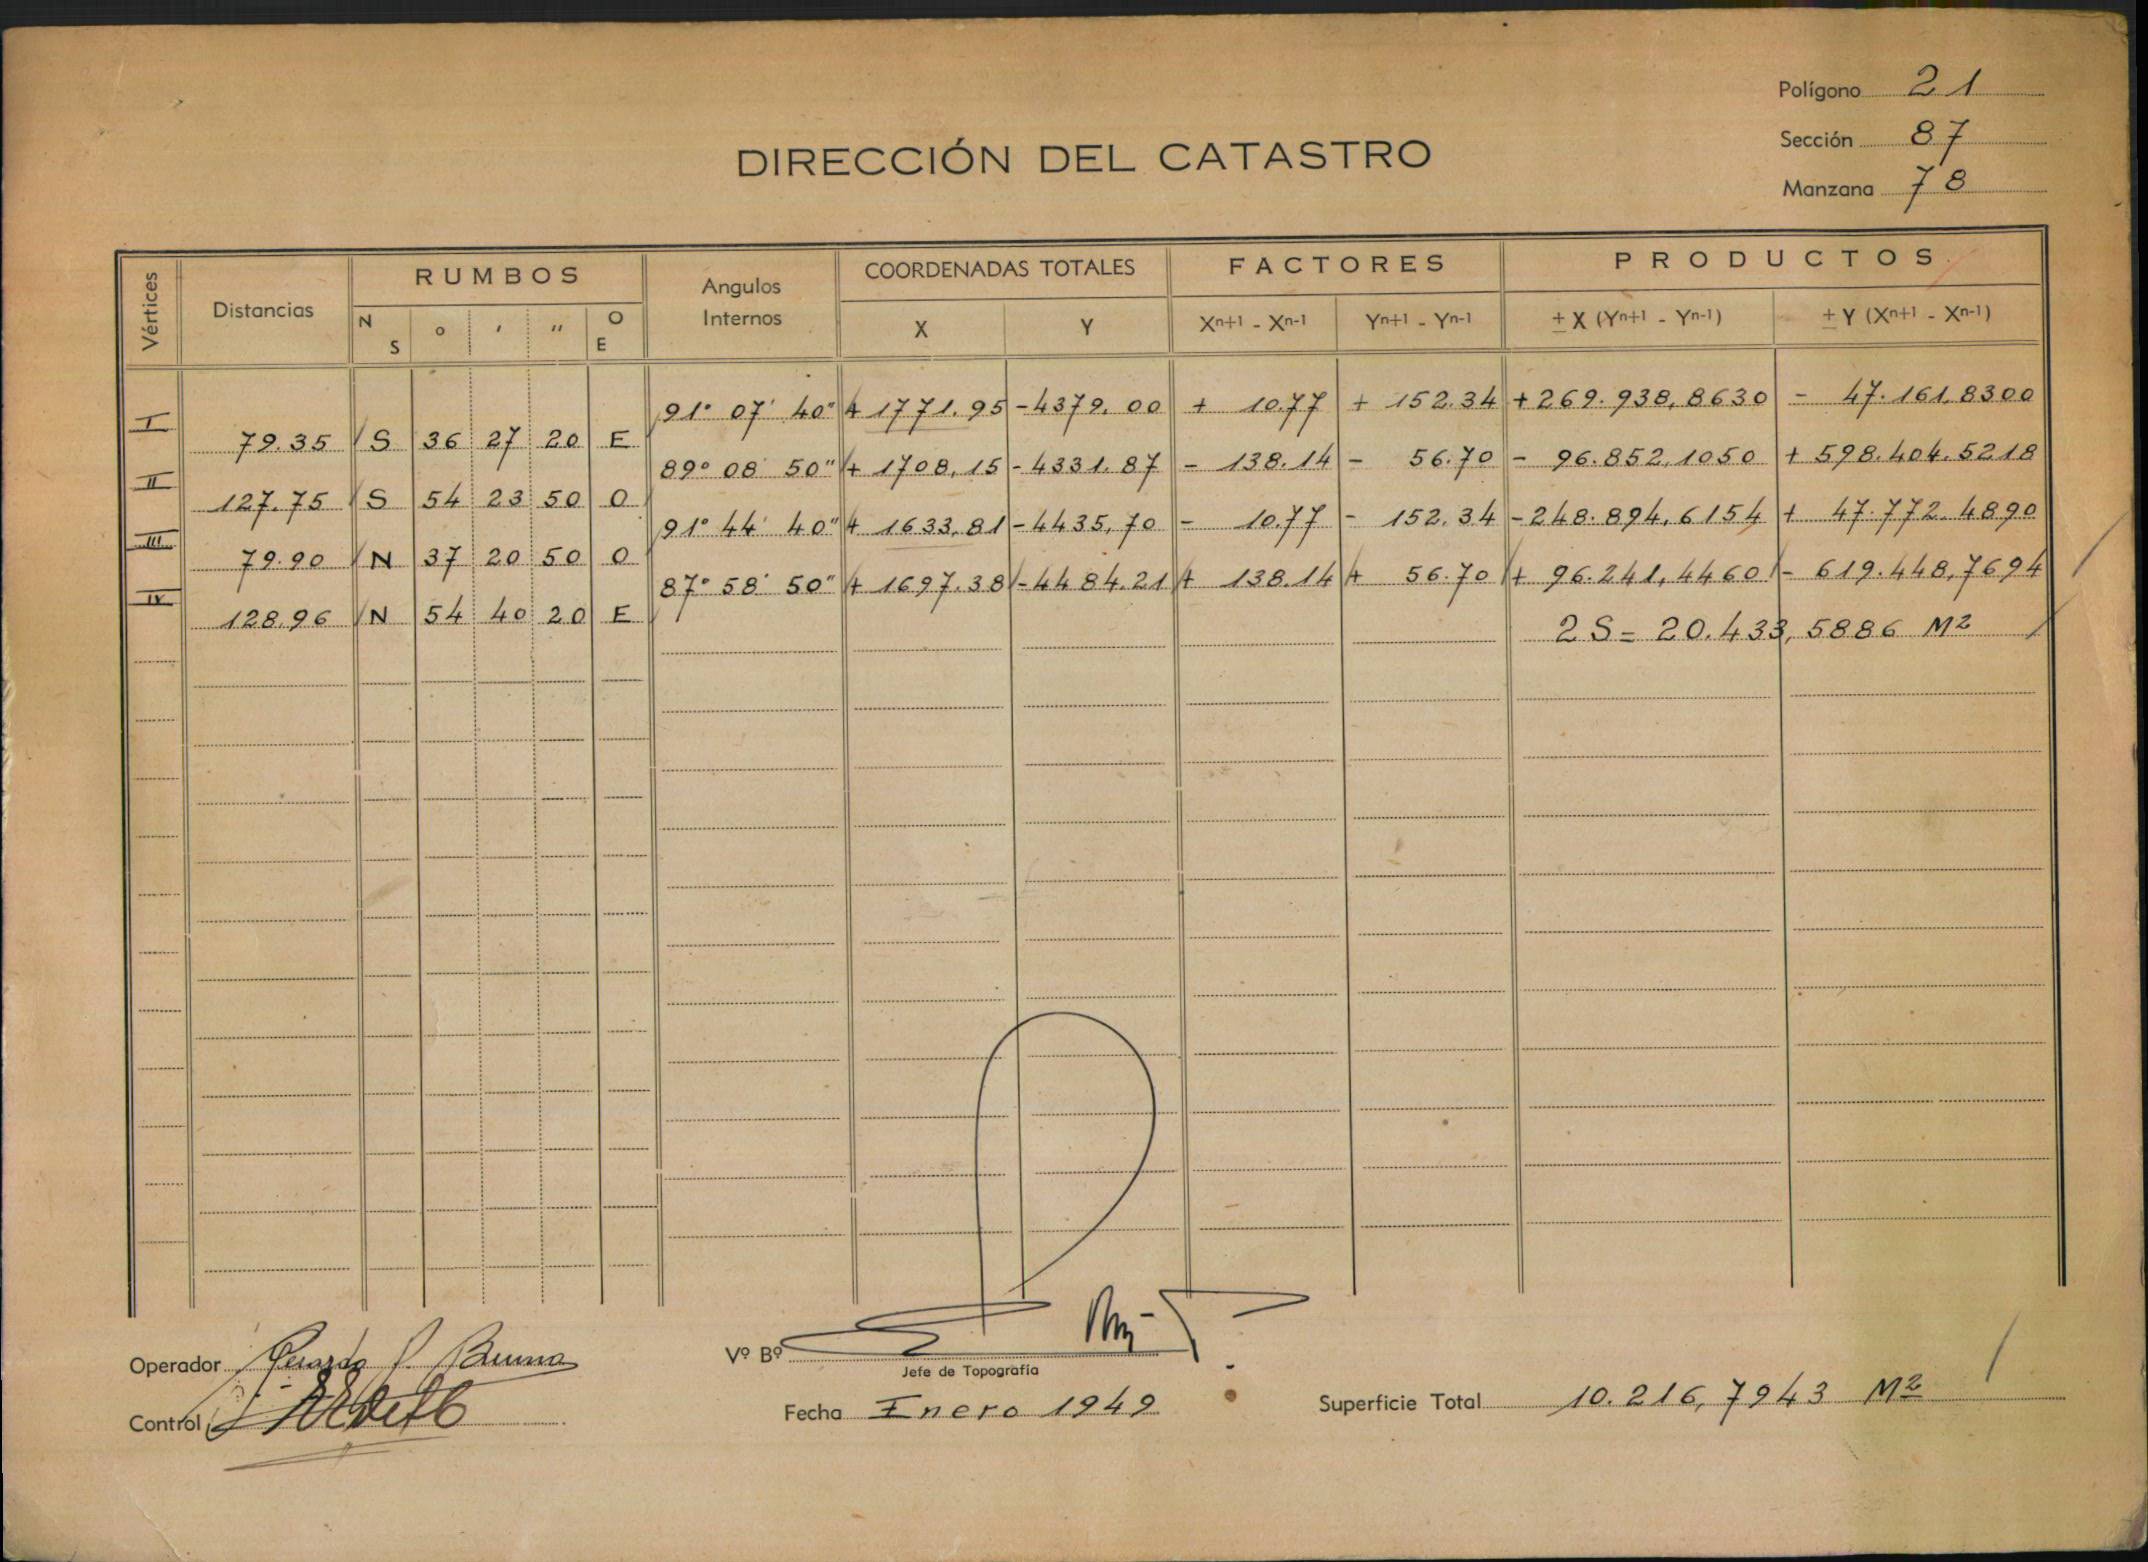 Polígono 21
Sección 87
Manzana 78
DIRECCIÓN DEL CATASTRO
Vértices Distancias RUMBOS Angulos Internos COORDENADAS TOTALES FACTORES PRODUCTOS
N S o ' '' O E X Y Xn+1 - Xn-1 Yn+1 - Yn-1 ± X (Yn+1 - Yn-1) ± Y (Xn+1 - Xn-1)
91° 07' 40" + 1771.95 -4379.00 + 10.77 + 152.34 +269.938,8630 - 47.161,8300
I 79.35 S 36 27 20 E
89° 08' 50" + 1708,15 -4331.87 - 138.14 - 56.70 - 96.852,1050 + 598.404.5218
II 127.75 S 54 23 50 O
91° 44' 40" + 1633,81 -4435,70 - 10.77 - 152.34 -248.894,6154 + 47.772.4890
III 79.90 N 37 20 50 O
87° 58' 50" + 1697.38 -4484.21 + 138.14 + 56.70 + 96.241,4460 - 619.448,7694
IV 128.96 N 54 40 20 E
2S = 20.433,5886 M2
Operador Gerardo P. Bruno
Vº Bº
Jefe de Topografía
Control
Fecha Enero 1949
Superficie Total 10.216,7943 M2